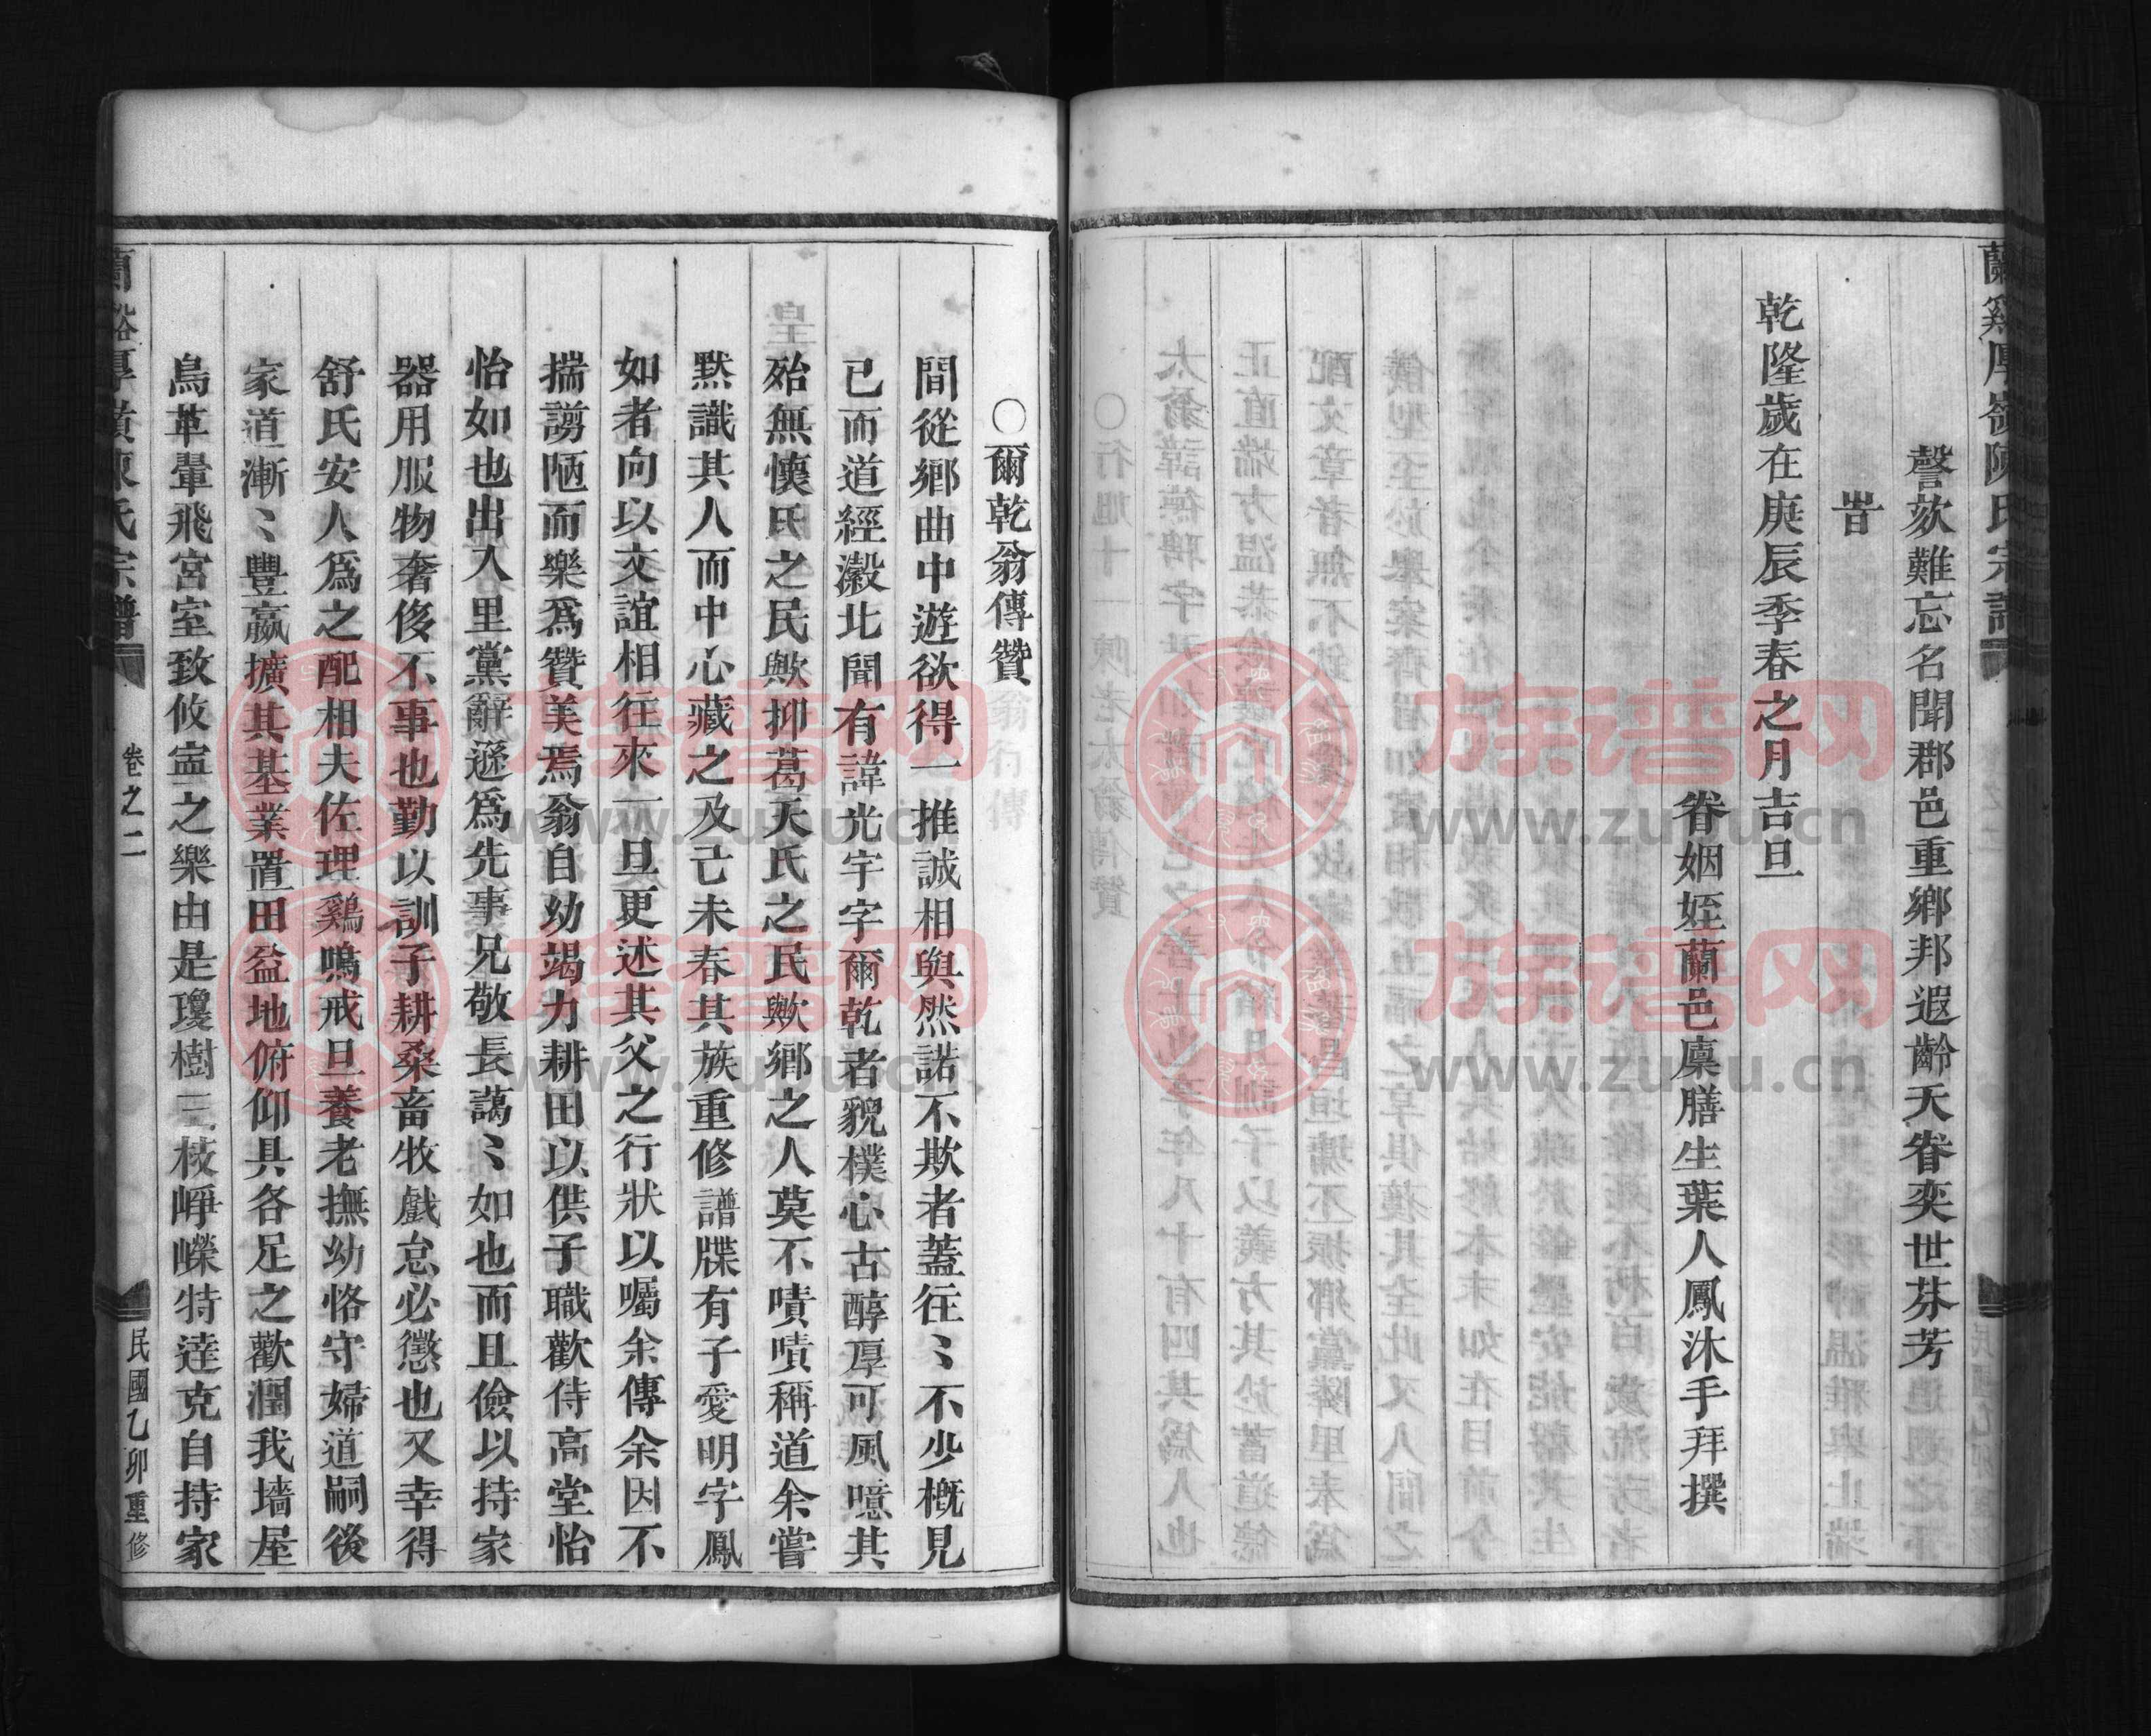 蘭谿厚嶺陳氏宗譜
謦欬難忘名聞郡邑重鄉邦遐齡天眷奕世芬芳
旹
乾隆歲在庚辰季春之月吉旦
眷姻姪蘭邑廩膳生葉人鳳沐手拜撰
〇爾乾翁傳贊
間從鄉曲中遊欲得一推誠相與然諾不欺者蓋往〻不少概見
已而道經瀫北聞有諱光宇字爾乾者貌樸心古醇厚可風噫其
殆無懷氏之民歟抑葛天氏之民歟鄉之人莫不嘖嘖稱道余嘗
默識其人而中心藏之及己未春其族重修譜牒有子愛明字鳳
如者向以交誼相往來一旦更述其父之行狀以囑余傳余因不
揣謭陋而樂爲贊美焉翁自幼竭力耕田以供子職歡侍高堂怡
怡如也出入里黨辭遜爲先事兄敬長藹〻如也而且儉以持家
器用服物奢侈不事也勤以訓子耕桑畜牧戲怠必懲也又幸得
舒氏安人爲之配相夫佐理鷄鳴戒旦養老撫幼恪守婦道嗣後
家道漸〻豐嬴擴其基業置田益地俯仰具各足之歡潤我墻屋
鳥革翬飛宮室致攸寍之樂由是瓊樹三枝崢嶸特達克自持家
蘭谿厚嶺陳氏宗譜
卷之二
民國乙卯重修
www.zupu.cn
族谱网
www.zupu.cn
族谱网
www.zupu.cn
族谱网
www.zupu.cn
族谱网